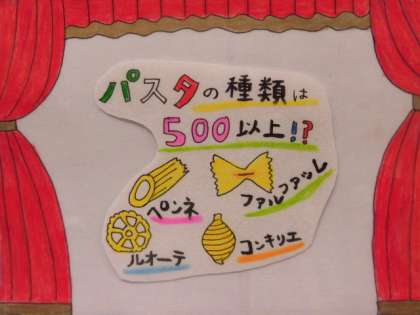 パスタの種類は
500以上!?
ペンネ
ファルファッレ
ルオーテ
コンキリエ